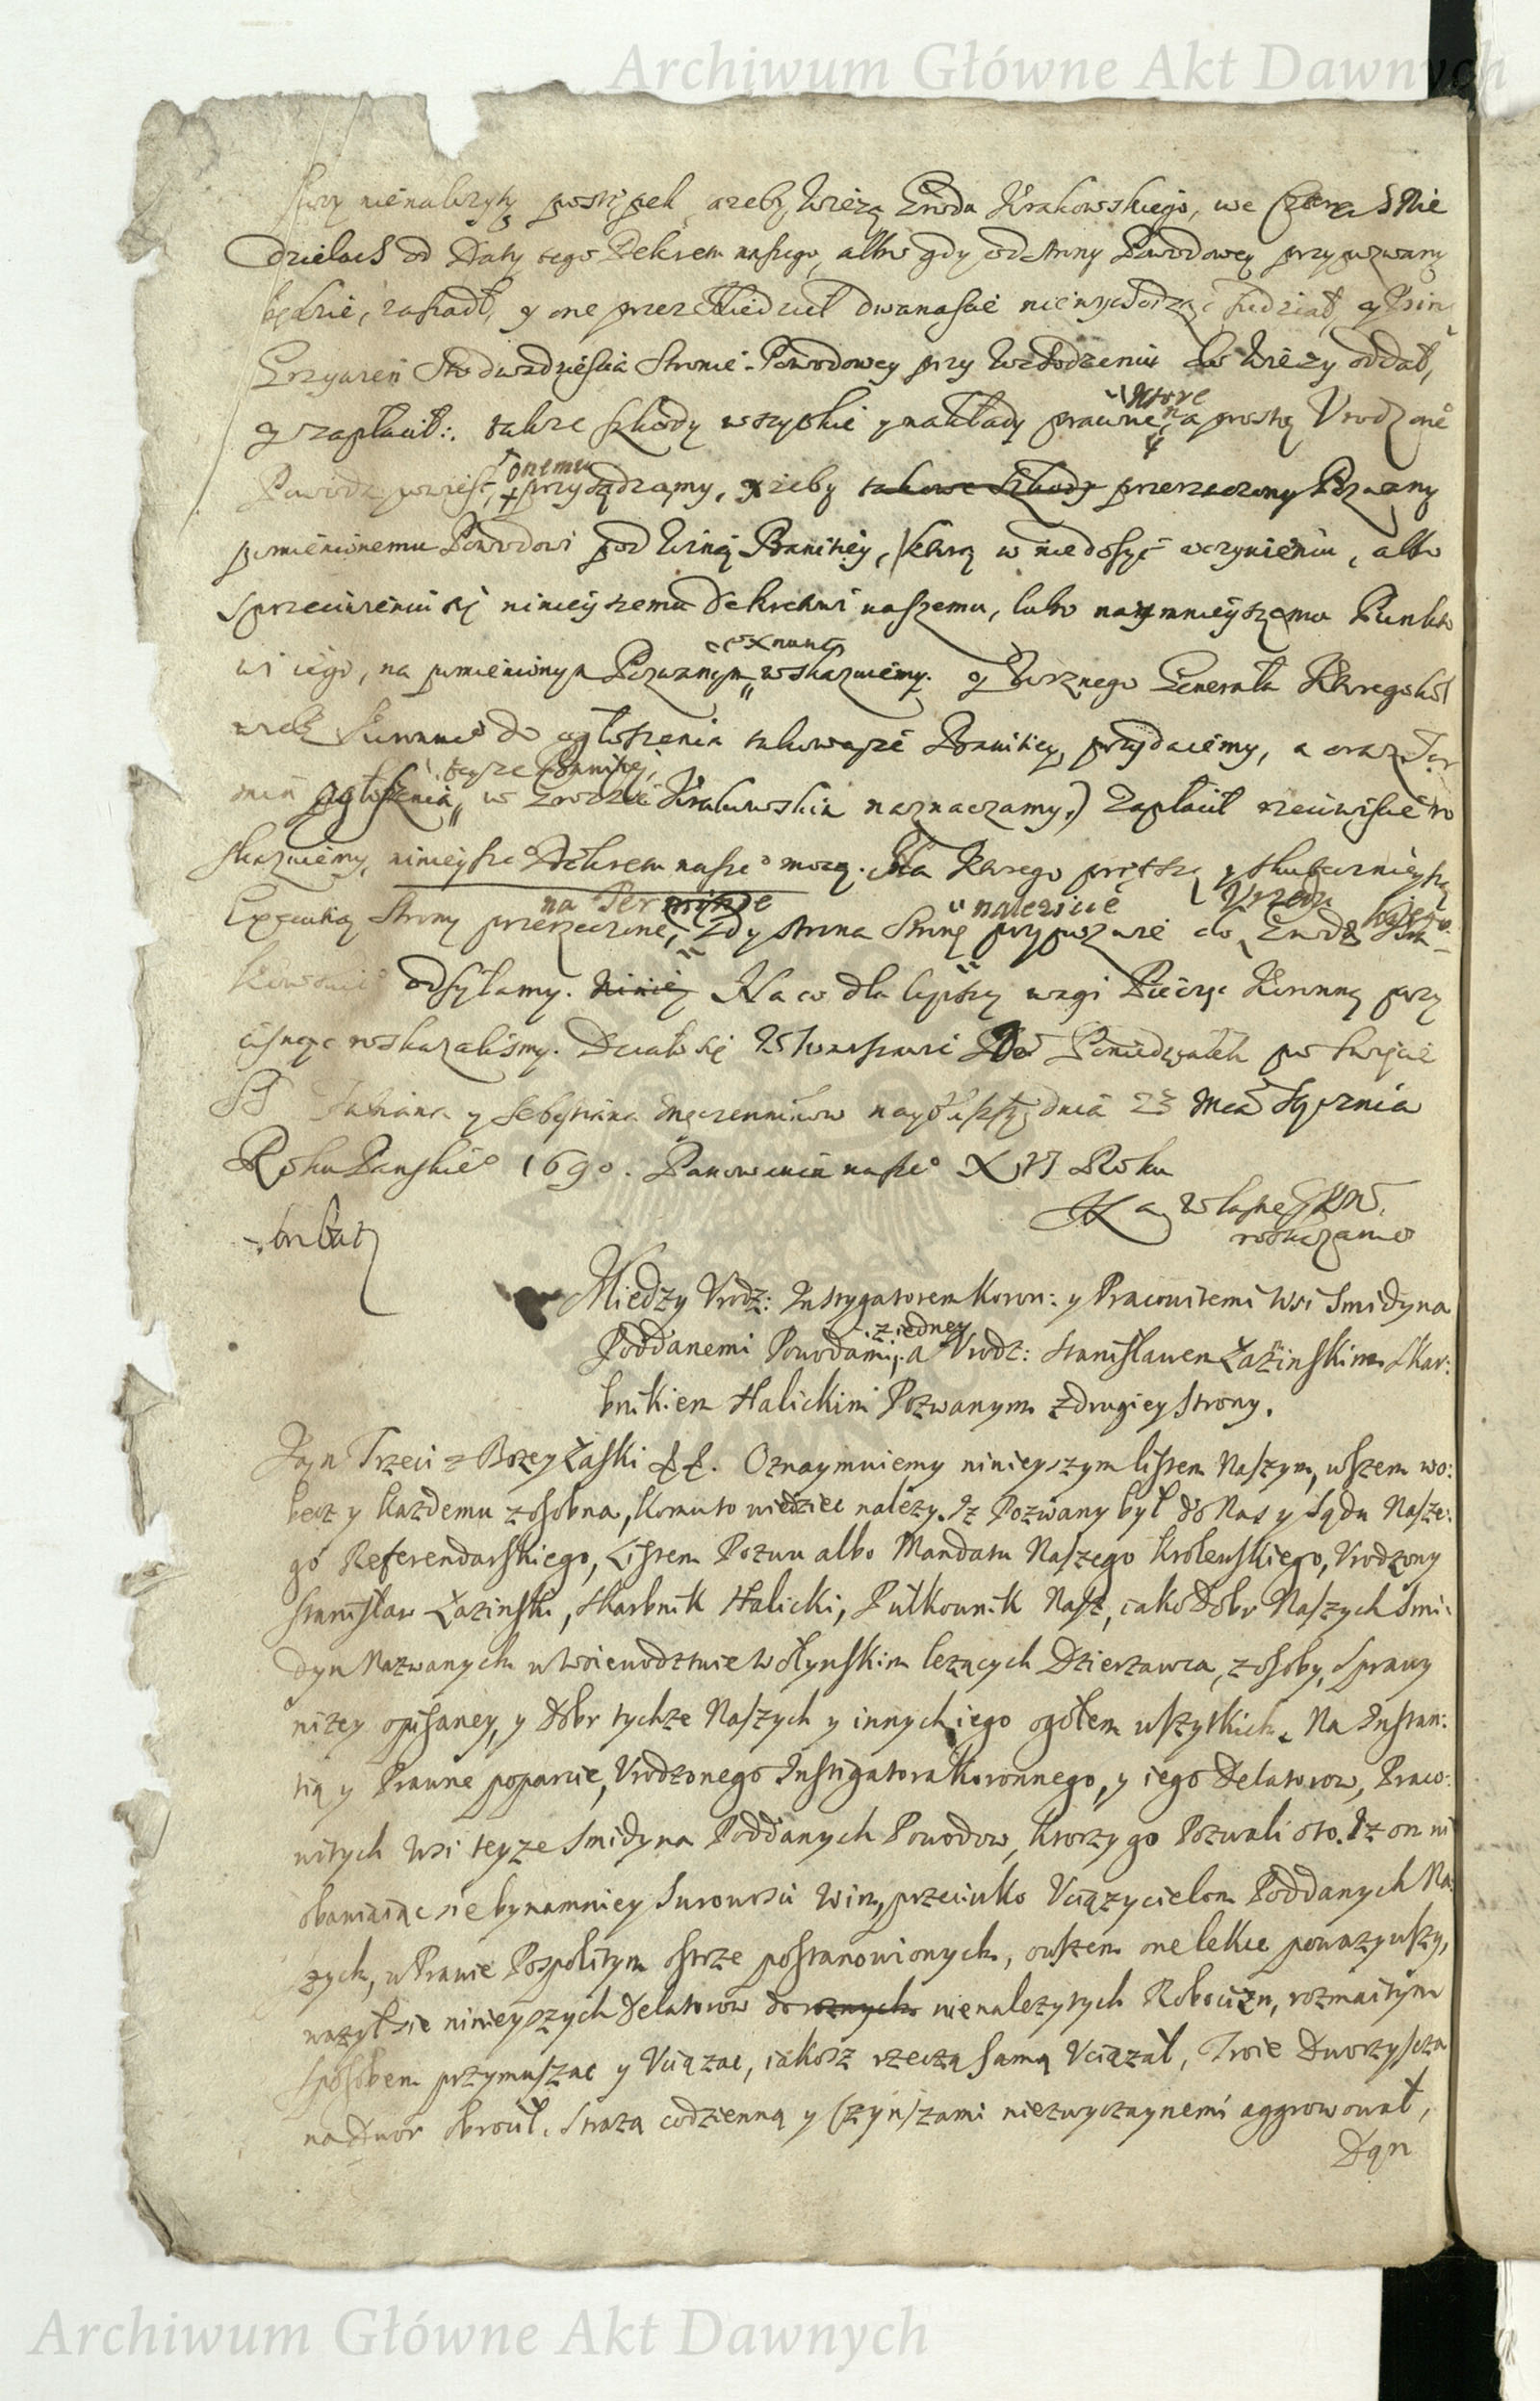 Archiwum Główne Akt Dawnych
nienalezyty postępek, azeby Wiezą Grodu Krakowskiego, we czterech Nie
dzielach od Daty tego Dekretu naszego, albo gdy od strony Powodowey przypozwany
będzie, zasiadł, y one przez Niedziel dwanascie niewychodząc siedział, y
Grzywien Sto dwadziescia Stronie Powodowey przy Wchodzeniu do Wiezy oddał,
ktore
y zapłacił: także szkody wszytkie y nakłady prawne, a prosto Vrodzone
onemu
przysądzamy, zeby takowe szkody przerzeczony Pozwany
pomienionemu Powodowi pod Winą Banitiey, ktorą w niedosyć uczynieniu, albo
sprzeciwieniu się ninieyszemu dekretowi naszemu, lubo naymnieyszemu Punkto
ex nunc
wi iego, na pomienionym Pozwanym wskazuiemy. y Woznego Generała Ktoregokol
wiek do ogłoszenia takowejze Banitiey, przydaiemy, a oraz Ter
teyze Banitiey,
min ogłoszenia w Grodzie Krakowskim naznaczamy.) Zapłacił rzeciwiscie
skazuiemy, ninieysze° Dekretu nasze° mocą. Dla Ktorego prętszą y skutecznieyszą
na Terminie należycie Vrzędu
Execution Strony przerzeczone, Gdy strona Stronę przypozwie do Grodu
odsyłamy. Niniey Na co dla lepszey wagi Pieczęć Koronną przy
cisnąć roskazalismy. Działo się W Warszawie We Poniedziałek po Swięcie
SS Fabiana y Sebestiana Męczennikow naybliższy dnia 23 Mca Stycznia
Roku Panskie° 1690. Panowania nasze° XVI Roku
Na własne JKM.
roskazanie
Między Vrodz: Instygatorem Koron: y Pracowitemi Wsi Smidyna
z iedney
Poddanemi Powodami, a Vrodz: Stanisławem Łazinskim Skar:
bnikiem Halickim Pozwanym z drugiey strony.
Jan Trzeci z Bozey Łaski &. &. Oznaymuiemy ninieyszym listem Naszym, wszem wo:
becz y Kazdemu zosobna, Komu to wiedziec nalezy. Iz Pozwany był do Nas y Sądu Nasze:
go Referendarskiego, Listem Pozwu albo Mandatu Naszego Krolewskiego, Vrodzony
Stanisław Łazinski, Skarbnik Halicki, Pułkownik Nasz, iako Dobr Naszych Smi:
dyn Nazwanych w Woiewodztwie Wołynskim lezących Dzierzawca, z osoby, Sprawy
nizey opisaney, y Dobr tychze Naszych y innych iego ogołem wszytkich. Na Instan:
tią y Prawne poparcie, Vrodzonego Instigatora Koronnego, y iego Delatorow, Praco:
witych Wsi teyze Smidyna Poddanych Powodow, ktorzy go Pozwali oto. Iz on ni
obawiaiąc sie bynamniey Surowosci Win, przeciwko Vciązycielom Poddanych Na
szych, w Prawie Pospolitym ostrze postanowionych, owszem one lekce powazywszy,
wazył sie ninieyszych Delatorow do roznych nienalezytych Robocizn, rozmaitym
sposobem przymuszac y Vciązac, iakosz rzeczą samą Vciązał, Troie Dworzyscza
na Dwor obrocił, Strazą codzienną y Czynszami niezwyczaynemi aggrowował,
Dan
Archiwum Główne Akt Dawnych